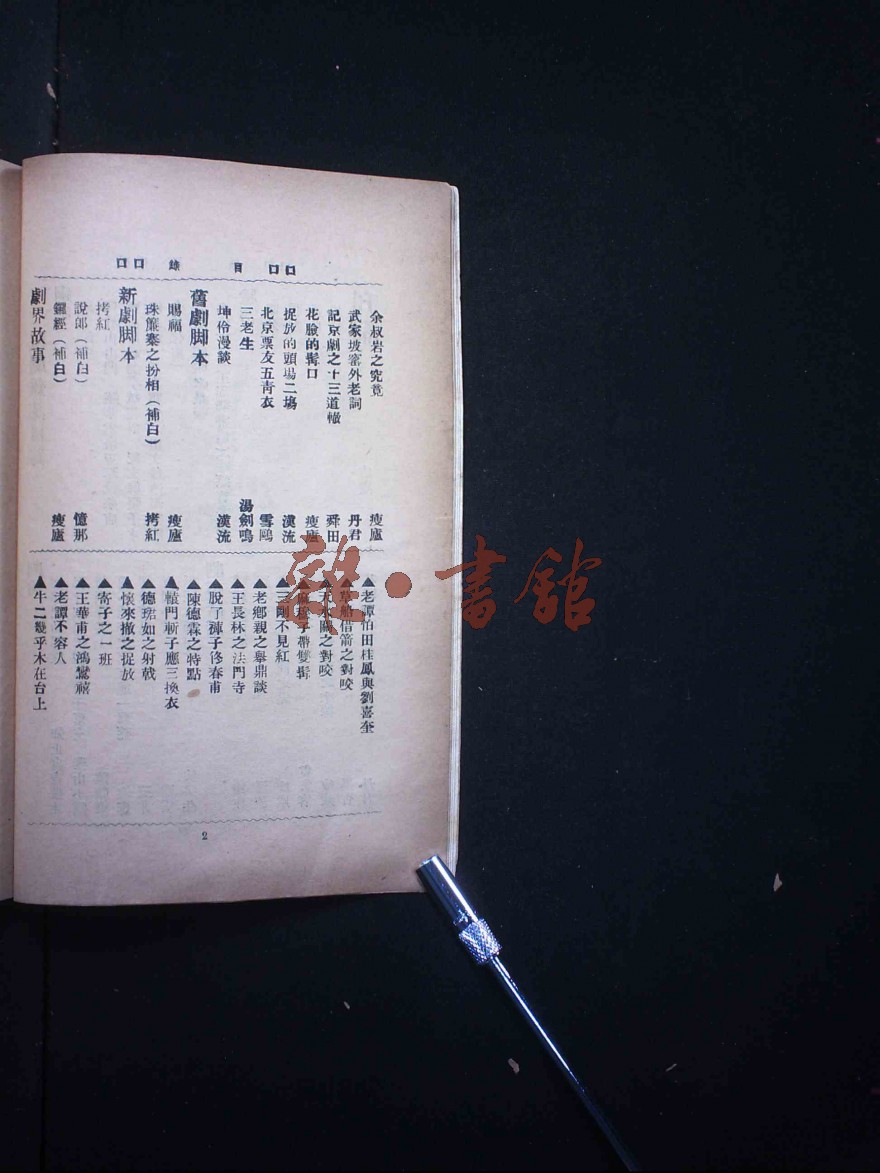 口口 目 錄 口口
余叔岩之究竟 瘦廬
武家坡窰外老詞 丹君
記京劇之十三道轍 舜田
花臉的髯口 瘦廬
捉放的頭場二場 漢流
北京票友五靑衣 雪鷗
三老生 湯劍鳴
坤伶漫談 漢流
舊劇脚本
賜福 瘦廬
珠簾寨之扮相(補白) 拷紅
新劇脚本
拷紅
說郎(補白) 憶那
鑼經(補白) 瘦廬
劇界故事
▲老譚怕田桂鳳與劉喜奎
▲草船借箭之對咬
▲天水關之對咬
帶雙髯
▲三剛不見紅
▲老鄉親之舉鼎談
▲王長林之法門寺
▲脫了褲子佟春甫
▲陳德霖之特點
▲轅門斬子應三換衣
▲德珺如之射戟
▲懷來撤之捉放
▲寄子之一班
▲王華甫之鴻鸞禧
▲老譚不容人
▲牛二幾乎木在台上
2
雜·書館